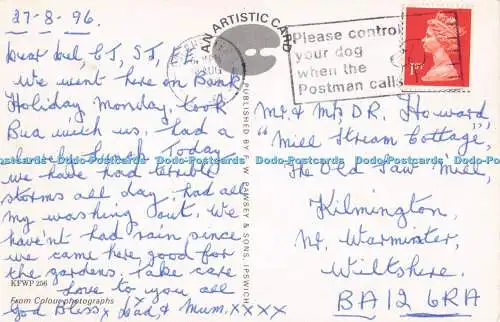 27-8-96.
Dear Mel, CJ, SJ,
We went here on Bank
Holiday Monday, took
Bua with us. had a
lunch. Today
we have had terrible
storms all day, had all
my washing out. We
haven't had rain since
we came here, good for
the gardens. Take care
Love to you all
God Bless x Dad, & Mum, xxxx
KPWP 256
From Colour photographs
AN ARTISTIC CARD
PUBLISHED BY F. W. PAWSEY & SONS, IPSWICH
AUG
Please control
your dog
when the
Postman calls
1ST
Mr. & Mrs D.R. Howard
"Mill Stream Cottage",
The Old Saw Mill,
Kilmington,
Nr. Warminster,
Wiltshire.
BA12 6RA
Dodo-Postcards Dodo-Postcards Dodo-Postcards Dodo-Postcards Dodo-Postcards